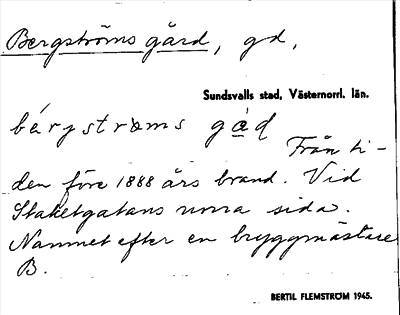 Bergströms gård, gd,
Sundsvalls stad, Västernorrl. län.
bérgströms gàd
Från ti-
den före 1888 års brand. Vid
Staketgatans norra sida.
Namnet efter en bryggmästare
B.
BERTIL FLEMSTRÖM 1945.